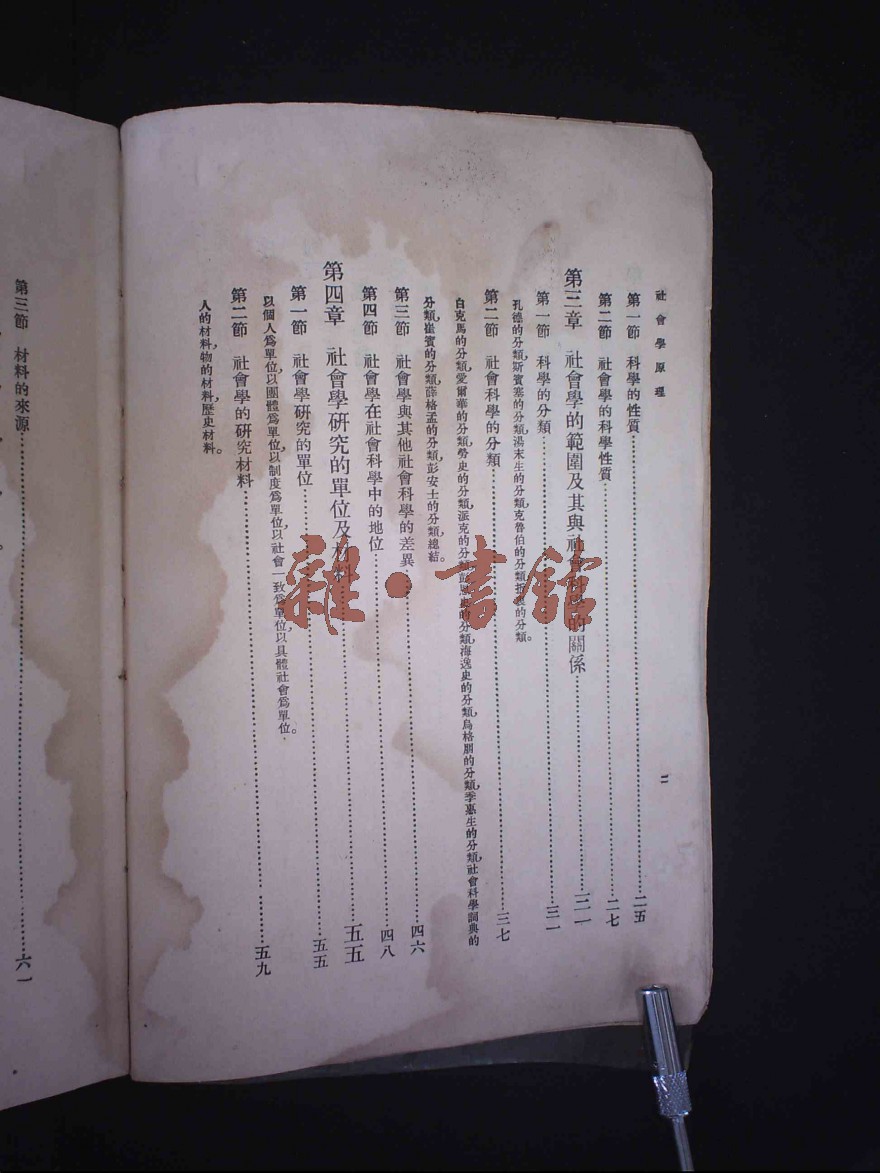 社會學原理
二
第一節 科學的性質 二五
第二節 社會學的科學性質 二七
第三章 社會學的範圍及其與社會科學的關係 三一
第一節 科學的分類 三一
孔德的分類,斯賓塞的分類,湯末生的分類,克魯伯的分類,折衷的分類。
第二節 社會科學的分類 三七
白克馬的分類,愛爾華的分類,勞史的分類,派克的分類,的分類,海逸史的分類,烏格朋的分類,季惠生的分類,社會科學詞典的
分類,崔賓的分類,薛格孟的分類,彭安士的分類,總結。
第三節 社會學與其他社會科學的差異 四六
第四節 社會學在社會科學中的地位 四八
第四章 社會學研究的單位及材料 五五
第一節 社會學研究的單位 五五
以個人爲單位,以團體爲單位,以制度爲單位,以社會一致爲單位,以具體社會爲單位。
第二節 社會學的研究材料 五九
人的材料,物的材料,歷史材料。
第三節 材料的來源 六一
雜·書館